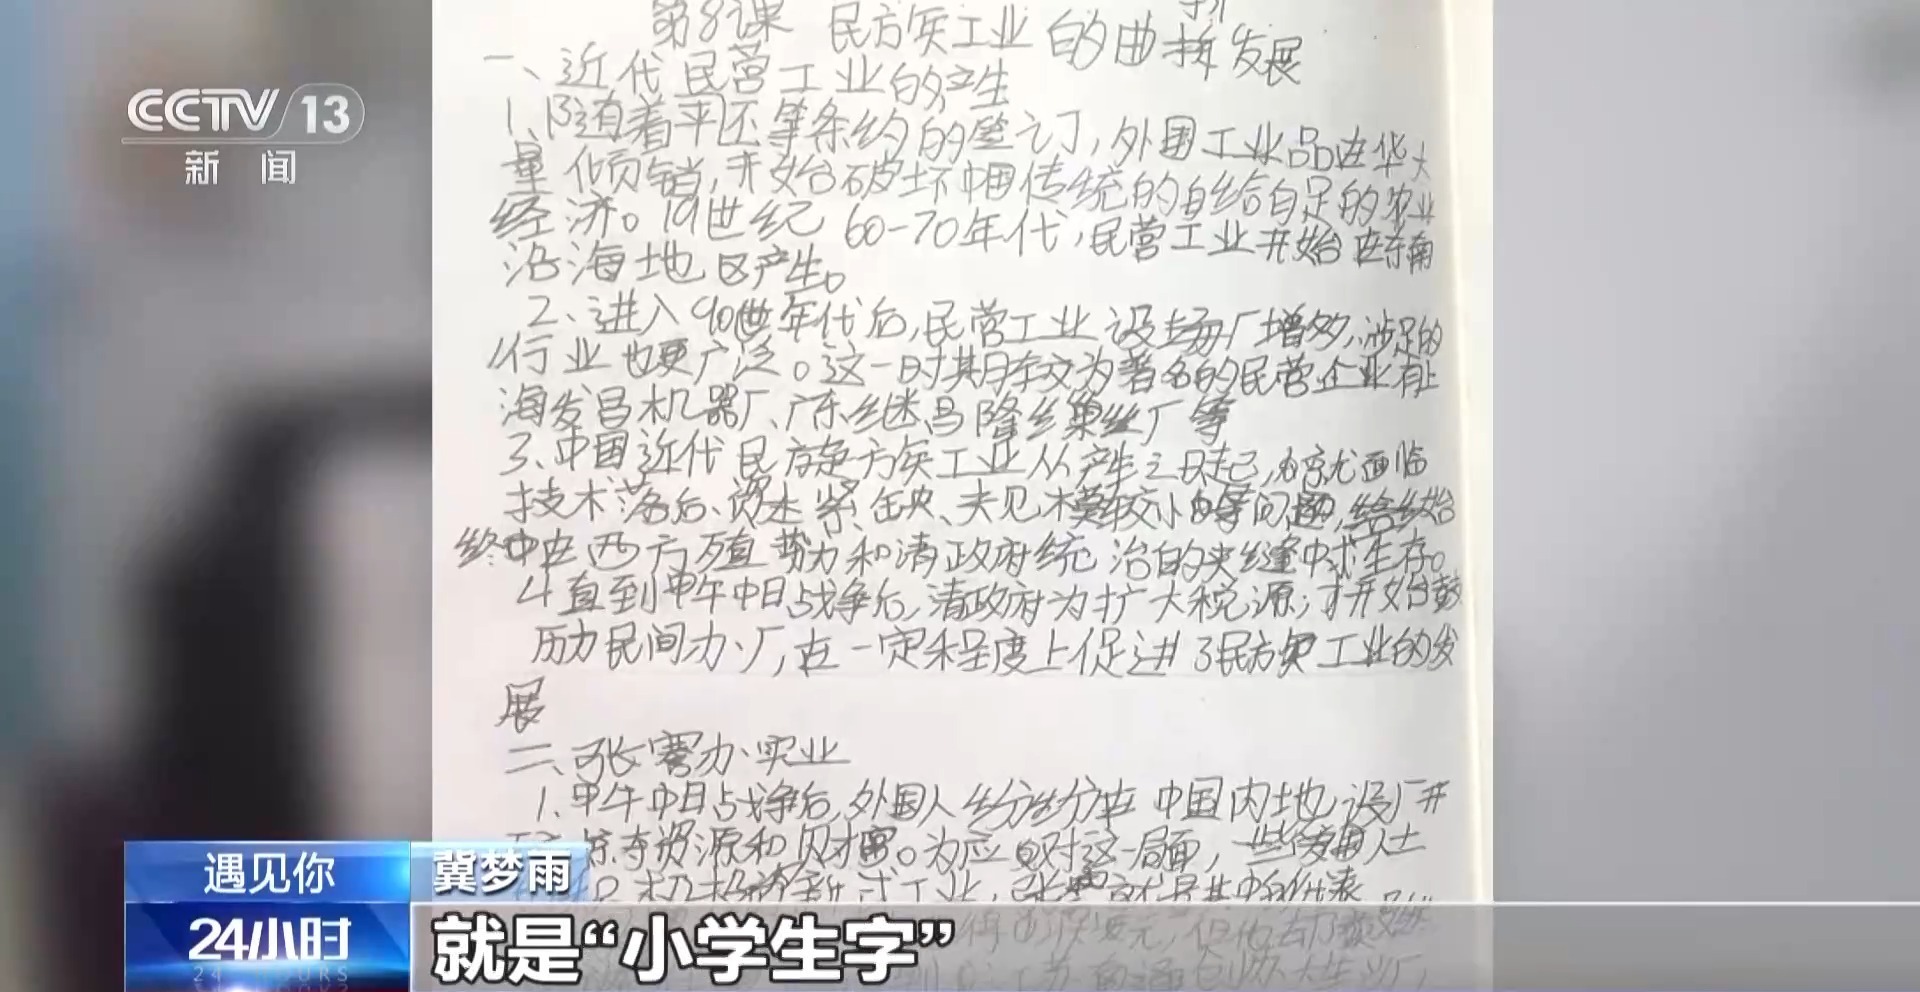 第8课 民族工业的曲折发展
CCTV 13
新闻
一、近代民营工业的产生
1、随着平不等条约的签订,外国工业品在华大
量倾销,开始破坏中国传统的自给自足的农业
经济。19世纪60-70年代,民营工业开始在东南
沿海地区产生。
2、进入90年代后,民营工业设场厂增多,涉足的
行业也更广泛。这一时期较为著名的民营企业有上
海发昌机器厂、广东继昌隆丝巢丝厂等
3、中国近代民族工业从产生之日起,就面临
技术落后、资本紧缺、规模较小等问题,始
终在西方殖势力和清政府统治的夹缝中求生存。
4直到甲午中日战争后,清政府为扩大税源,才开始鼓
历力民间办厂,在一定程度上促进了民族工业的发
展
二、张謇办实业
1、甲午中日战争后,外国人纷纷在中国内地设厂开
掠夺资源和财富。为应对这一局面,一些爱国人士
遇见你 冀梦雨
24小时
24 HOURS
就是“小学生字”